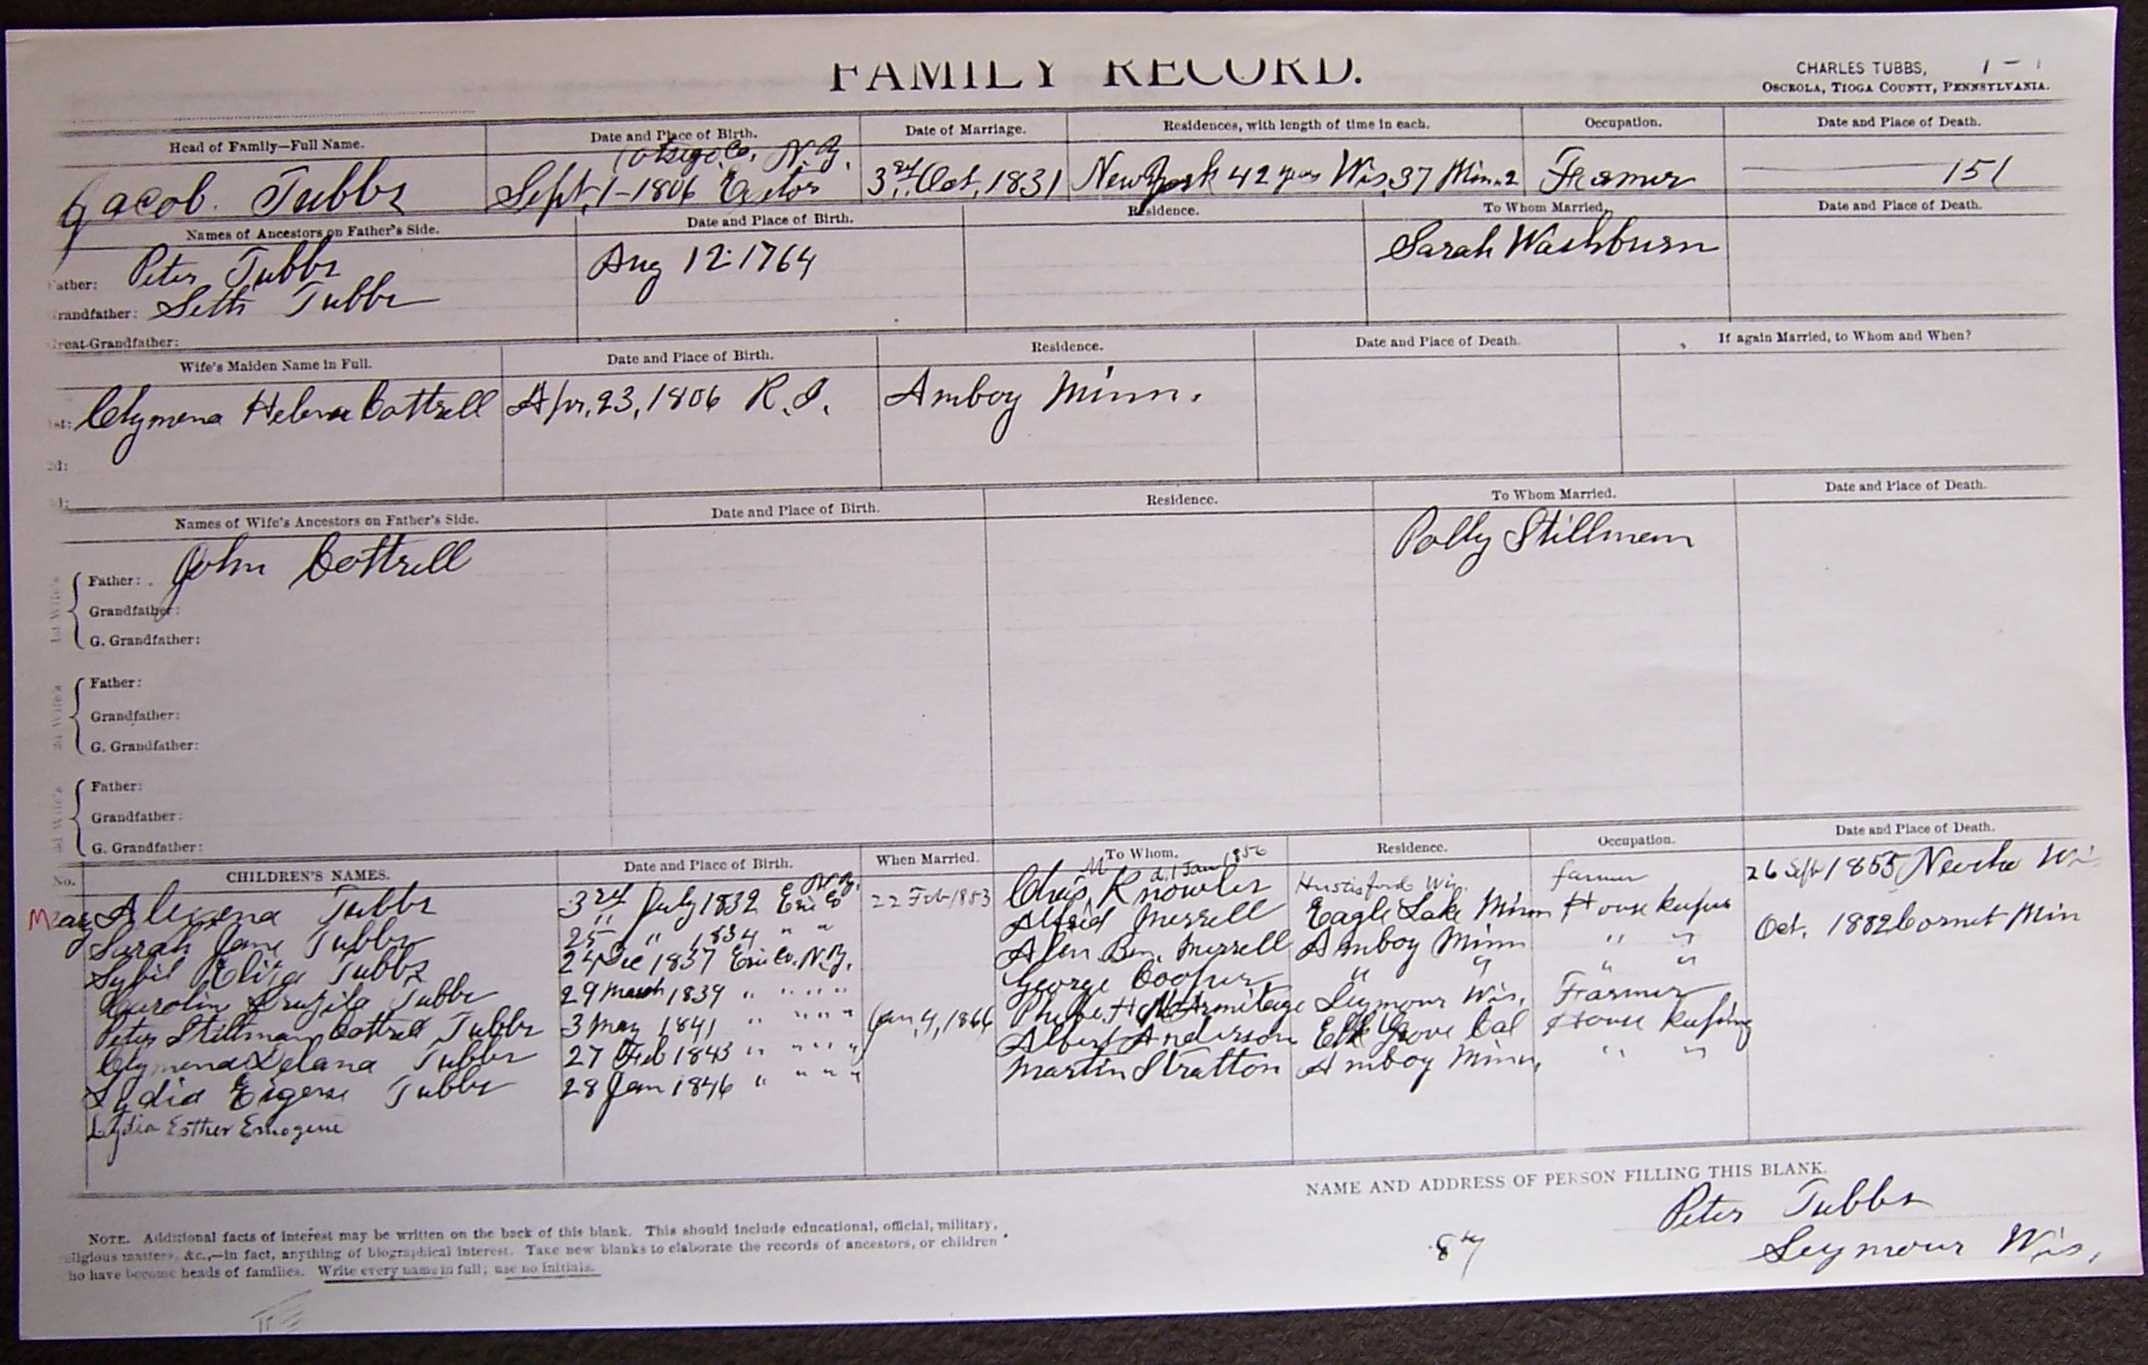 FAMILY RECORD.
CHARLES TUBBS,
OSCEOLA, TIOGA COUNTY, PENNSYLVANIA.
Head of Family—Full Name. Date and Place of Birth. Date of Marriage. Residences, with length of time in each. Occupation. Date and Place of Death.
Otsego Co. N.Y.
Jacob. Tubbs Sept, 1-1806 Exeter 3rd Oct, 1831 New York 42 years Wis, 37 Minn 2 Framer 151
Names of Ancestors on Father's Side. Date and Place of Birth. Residence. To Whom Married. Date and Place of Death.
Father: Peter Tubbs Aug 12 1764 Sarah Washburn
Grandfather: Seth Tubbs
Great-Grandfather:
Wife's Maiden Name in Full. Date and Place of Birth. Residence. Date and Place of Death. If again Married, to Whom and When?
1st: Clymena Helena Cottrell Apr, 23, 1806 R.I. Amboy Minn.
2d:
Names of Wife's Ancestors on Father's Side. Date and Place of Birth. Residence. To Whom Married. Date and Place of Death.
1st Wife's Father: John Cottrell Polly Stillman
Grandfather:
G. Grandfather:
2d Wife's Father:
Grandfather:
G. Grandfather:
3d Wife's Father:
Grandfather:
G. Grandfather:
No. CHILDREN'S NAMES. Date and Place of Birth. When Married. To Whom. Residence. Occupation. Date and Place of Death.
M d. 1 Jan 1856
Mary Alexena Tubbs 3rd July 1832 Erie Co N.Y. 22 Feb 1853 Chas Knowles Hustisford Wis. farmer 26 Sept 1855 Wis
Sarah Jane Tubbs 25 " 1834 " " Alfrid Merrell Eagle Lake Minn House keeper
Sybil Eliza Tubbs 24 Dec 1837 Erie Co. N.Y. Alen Ben. Merrell Amboy Minn " " Oct. 1882 Cornet Min
Carolin Druzila Tubbs 29 March 1839 " " " " " George Cooper " " " "
Peter Stillman Cottrell Tubbs 3 May 1841 " " " " Jan, 4, 1866 Phebe H McArmitage Seymour Wis, Farmer
Clymena Delana Tubbs 27 Feb 1843 " " " " Albert Anderson Elk Grove Cal House keeping
Lydia Eigene Tubbs 28 Jan 1846 " " " " Martin Stratton Amboy Minn, " "
Lydia Esther Emogene
NAME AND ADDRESS OF PERSON FILLING THIS BLANK.
Peter Tubbs
Seymour Wis,
NOTE. Additional facts of interest may be written on the back of this blank. This should include educational, official, military,
religious matters, &c.,—in fact, anything of biographical interest. Take new blanks to elaborate the records of ancestors, or children
who have become heads of families. Write every name in full; use no initials.